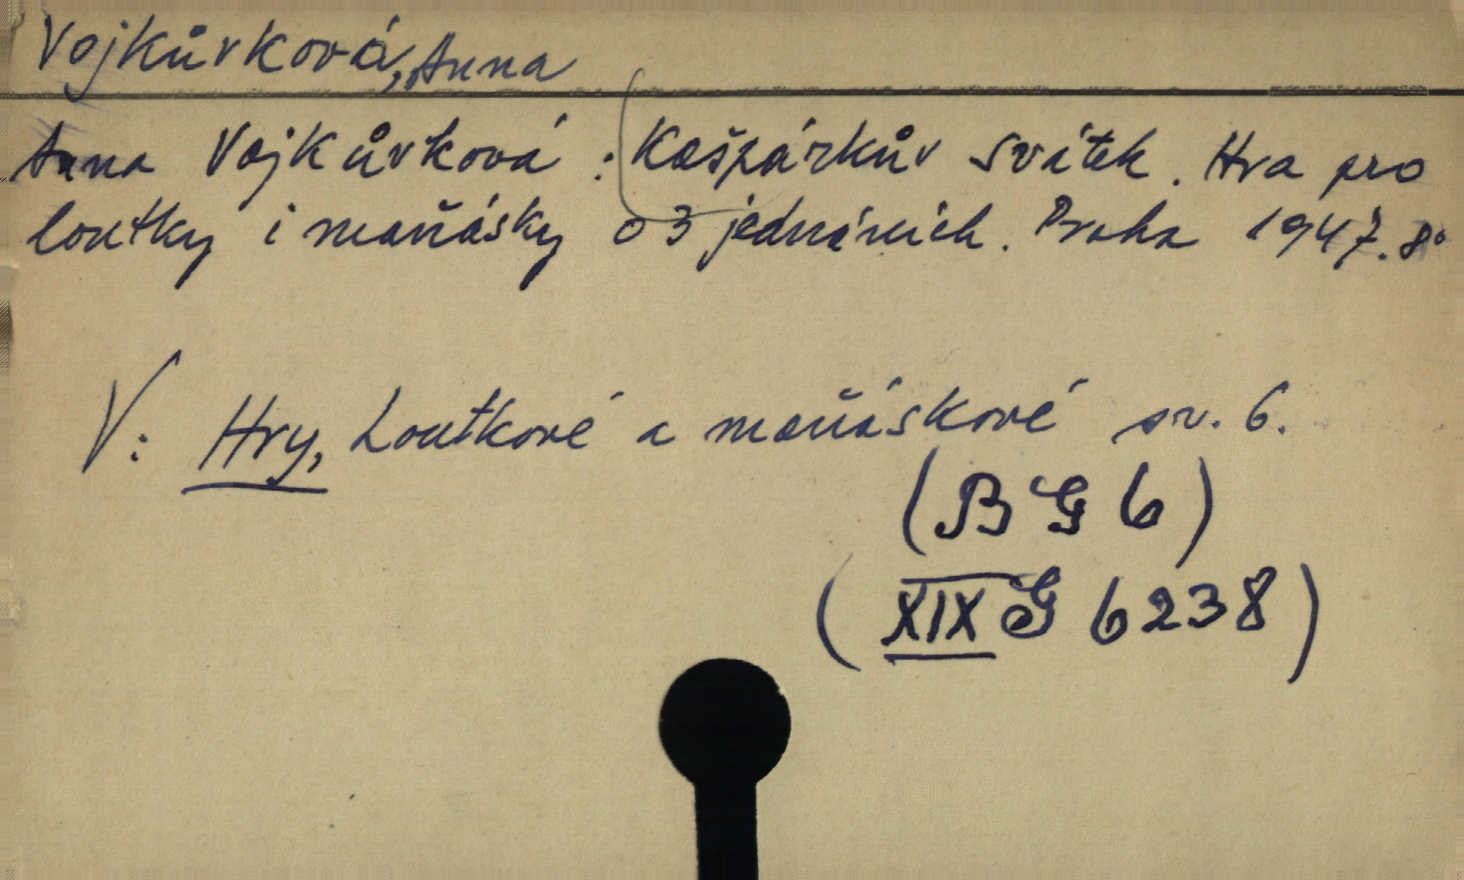 Vojkůvková, Anna
Anna Vojkůvková : Kašpárkův svátek. Hra pro
loutky i maňásky o 3 jednáních. Praha 1947. 8°
V: Hry, Loutkové a maňáskové sv. 6.
(B G 6)
(XIX G 6238)